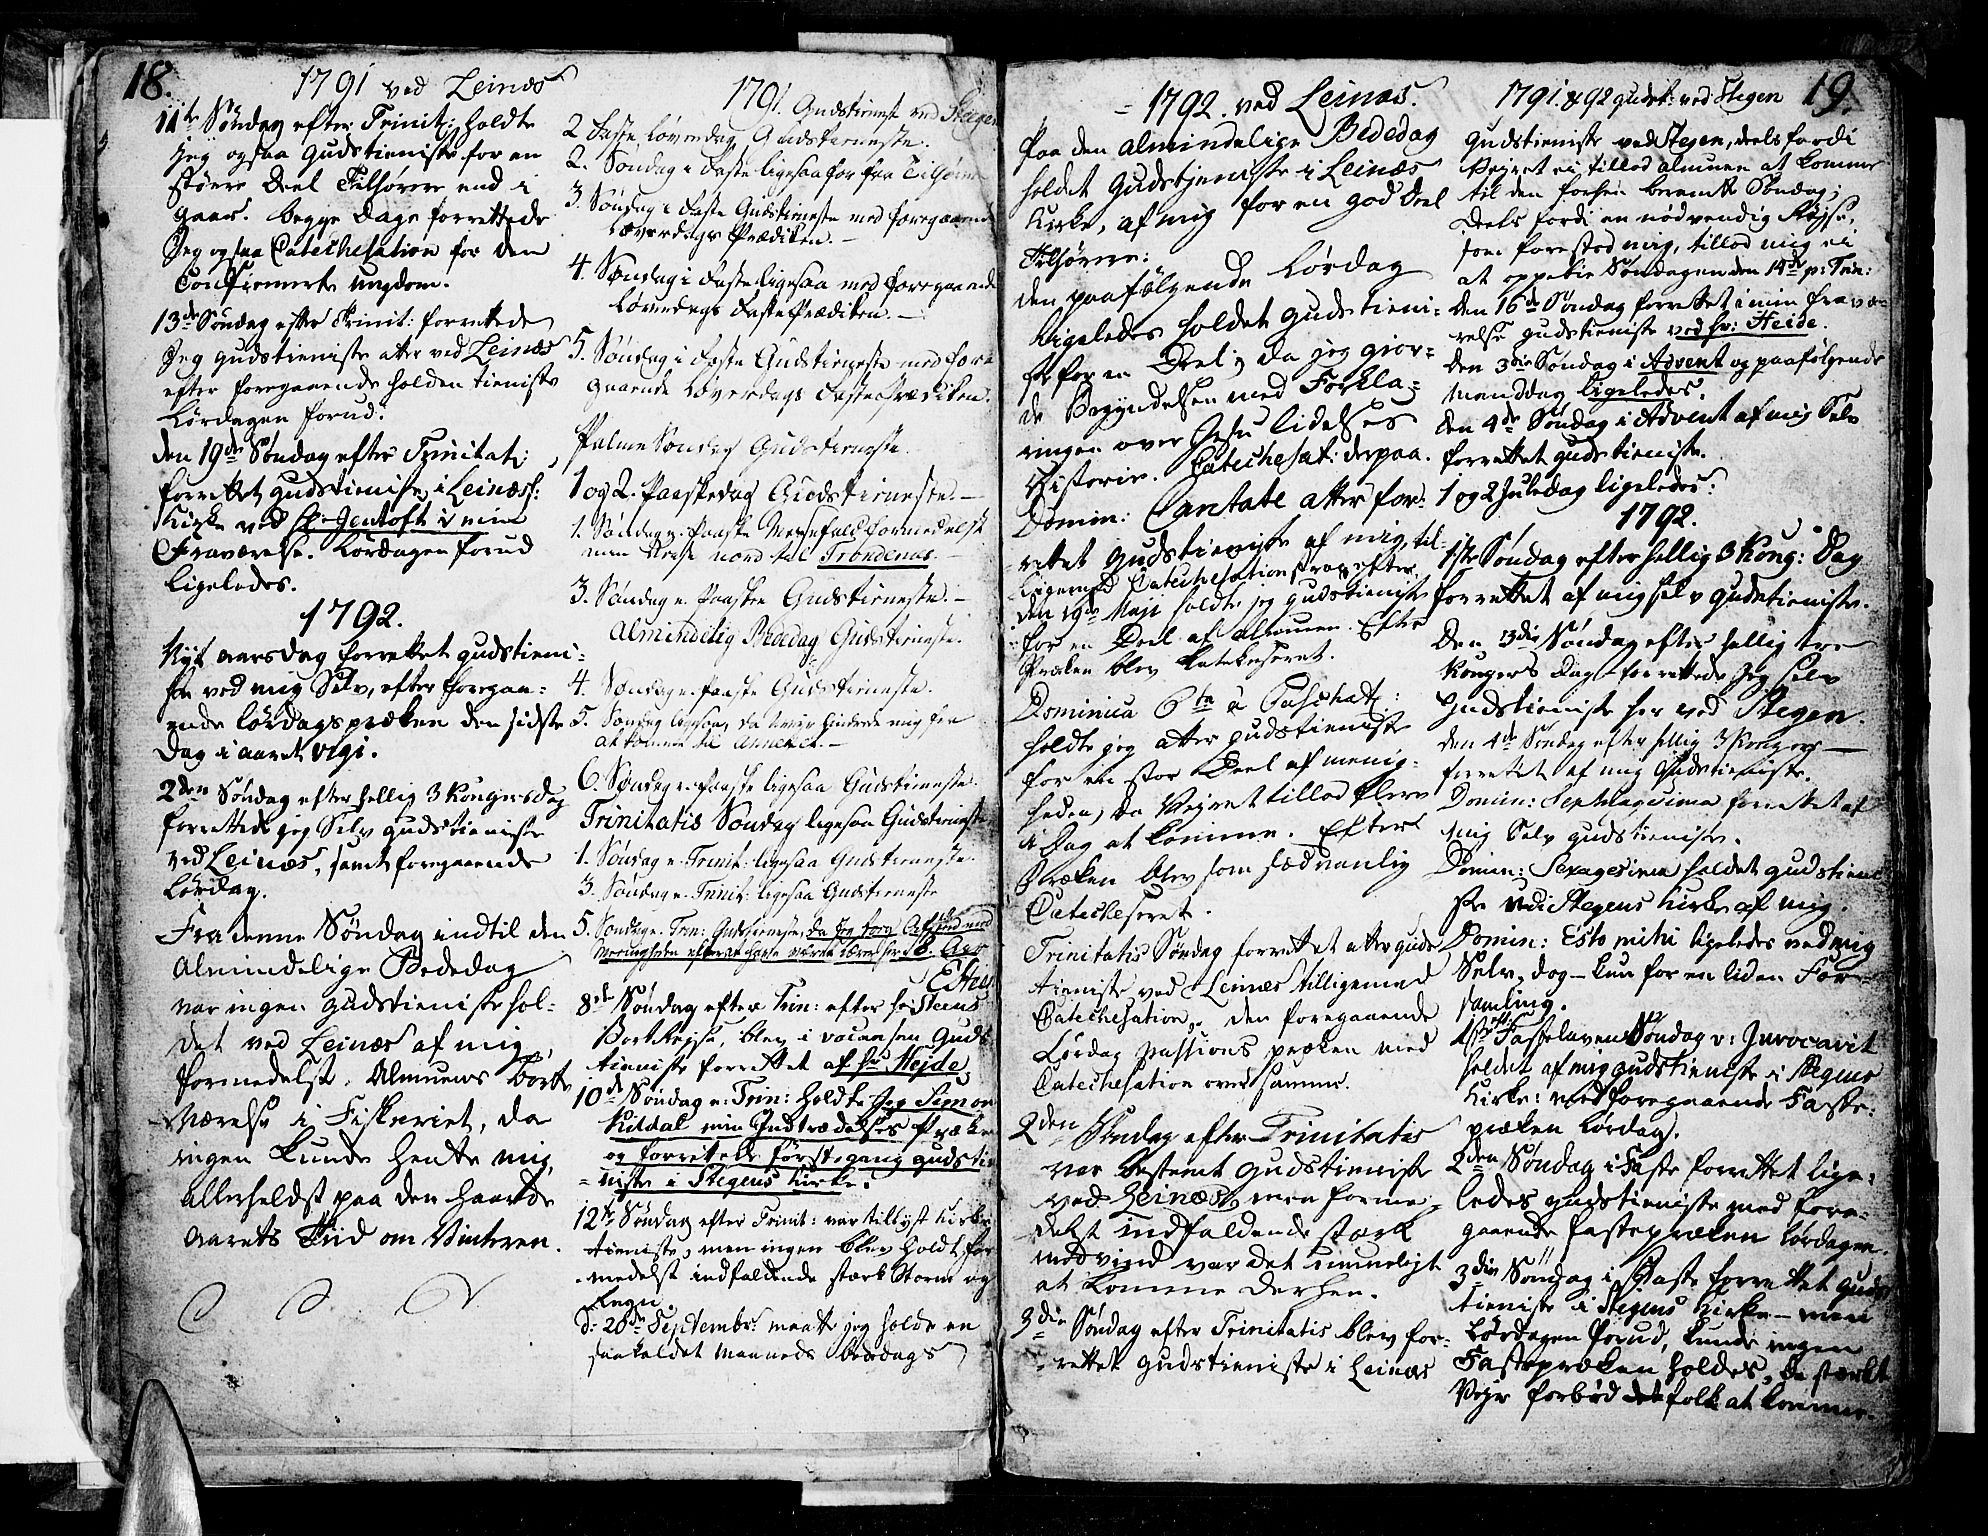 18.
1791 ved Leinæs
11te Søndag efter Trinit: holdte
jeg ogsaa Gudstieniste for en
større Deel Tilhørere end i
gaar. begge Dage forrettede
Jeg ogsaa Catechesation for den
Confirmerte ungdom.
13de Søndag efter Trinit: forrettede
Jeg gudstieniste atter ved Leinæs
efter foregaaende holden tieniste
Lørdagen forud.
den 19de Søndag efter Trinitat:
forrettet gudstieniste i Leinæss:
Kirke ved Hr. Jentoft i min
Fraværelse. Lørdagen forud
ligeledes.
1792.
Nyt aarsdag forrettet gudstieni-
ste ved mig Selv, efter foregaa-
ende lørdagspræken den sidste
Dag i aaret 1791.
2den Søndag efter hellig 3 Kongersdag
forrettede jeg Selv gudstieniste
ved Leinæs, samt foregaaende
Lørdag.
Fra denne Søndag indtil den
Almindelige Bededag
var ingen gudstieniste hol-
det ved Leinæs af mig,
formedelst Almuens borte
Værelse i Fiskeriet, da
ingen kunde hente mig,
allerheldst paa den haarde
Aarets Tiid om Vinteren.
1791. Gudstienest ved Stegen
2 Faste Løverdag Gudstieneste.
2. Søndag i Faste ligesaa for faa Tilhører
3. Søndag i Faste Gudstieneste med foregaaende
Løverdags Prædiken. —
4. Søndag i Faste ligesaa med foregaaende
Løverdags FastePrædiken. —
5. Søndag i Faste Gudstieneste med fore
gaaende Løverdags FastePrædiken.
Palme Søndag Gudstieneste.
1 og 2. Paaskedag Gudstieneste. —
1. Søndag e. Paaske Messefald formedelst
min Reise nord til Trondenæs. —
3. Søndag e. Paaske Gudstieneste. —
Almindelig Bededag Gudstieneste.
4. Søndag e. Paaske Gudstieneste.
5. Søndag ligesaa, da Veiret hindrede mig fra
at komme til Annexet. —
6. Søndag e. Paaske ligesaa Gudstieneste.
Trinitatis Søndag ligesaa Gudstieneste
1. Søndag e. Trinit: ligesaa Gudstieneste.
3. Søndag e. Trinit: ligesaa Gudstieneste
5. Søndag e. Trin: Gudstieneste, da jeg tog Afskeed med
Menigheden efter at have været Lærer her 8. Aar
8de Søndag efter Trin: efter hr Steens
Bort Rejse, blev i vacansen Guds
tieniste forrettet af Hr Hejde,
10de Søndag e: Trin: holdte Jeg Simon
Kildal min Indtrædelses Præken
og forrettede første gang gudstie
niste i Stegens Kirke.
12te Søndag efter Trinit: var tillyst Kirke
tieniste, men ingen blev holdt, for
medelst indfaldende stærk Storm og
Regn.
d: 28de Septembr: maatte jeg holde en
saakaldet Maaneds bededags
19.
1792. ved Leinæs.
Paa den almindelige Bededag
holdet Gudstieniste i Leinæs
Kirke, af mig for en god Deel
Tilhørere:
den paafølgende Lørdag
ligeledes holdet gudstieni-
ste for en Deel; da jeg gior-
de Begyndelsen med Forkla-
ringen over Jesu lidelses
Historie. Catechesat: derpaa.
Domin: Cantate atter for-
rettet gudstieniste af mig, til-
ligemed Catechesation strax efter
Den 19de Maji holdte jeg gudstieniste
for en Deel af Almuen. Efter
Præken blev katekiseret.
Dominica 6ta à Paschat:
holdte jeg atter gudstieniste
for en stor Deel af menig-
heden, da Vejret tillod flere
i Dag at komme. Efter
Præken blev som sædvanlig
Catecheseret.
Trinitatis Søndag forrettet atter guds
tieniste ved Leinæs tilligemed
Catechesation, den foregaaende
Lørdag passions præken med
Catechesation over samme.
2den Søndag efter Trinitatis
var bestemt gudstieniste
ved Leinæs, men forme-
delst indfaldende stærk
modvind var det umueligt
at komme derhen.
3die Søndag efter Trinitatis blev for-
rettet gudstieniste i Leinæs
1791. & 92 gudst: ved Stegen
gudstieniste ved Stegen, deels fordi
Vejret ei tillod Almuen at komme
til den forhen berammte Søndag;
Deels fordi en nødvendig Rejse,
som forestod mig, tillod mig ei
at oppebie Søndagen den 14de p: Trin:
den 16de Søndag forrettet i min fravæ-
relse gudstieniste ved hr: Heide.
den 3die Søndag i Advent og paafølgende
manddag ligeledes.
den 4de Søndag i Advent af mig Selv
forrettet gudstieniste.
1 og 2 Juledag ligeledes.
1792.
1ste Søndag efter hellig 3 Kong: Dag
forrettet af mig selv gudstieniste.
Den 3die Søndag efter hellig tre
Kongers Dag forrettede Jeg selv
Gudstieniste her ved Stegen.
den 4de Søndag efter hellig 3 Kongers —
forrettet af mig Gudstieniste.
Domin: Septuagesima forrettet af
mig Selv gudstieniste.
Domin: Sexagesima holdet gudstieni-
ste ved Stegens Kirke af mig.
Domin: Esto mihi ligeledes ved mig
Selv, dog — kun for en liden For-
samling.
1ste Fastelavens Søndag v: Invocavit
holdet af mig gudstieniste i Stegens
Kirke: med foregaaende Faste-
præken Lørdag.
2den Søndag i Faste forrettet lige-
ledes gudstieniste med fore-
gaaende fastepræken Lørdagen.
3die Søndag i Faste forrettet guds
tieniste i Stegens Kirke — men
Lørdagen forud, kunde ingen
Fastepræken holdes, da stærkt
Vejr forbød folk at komme.